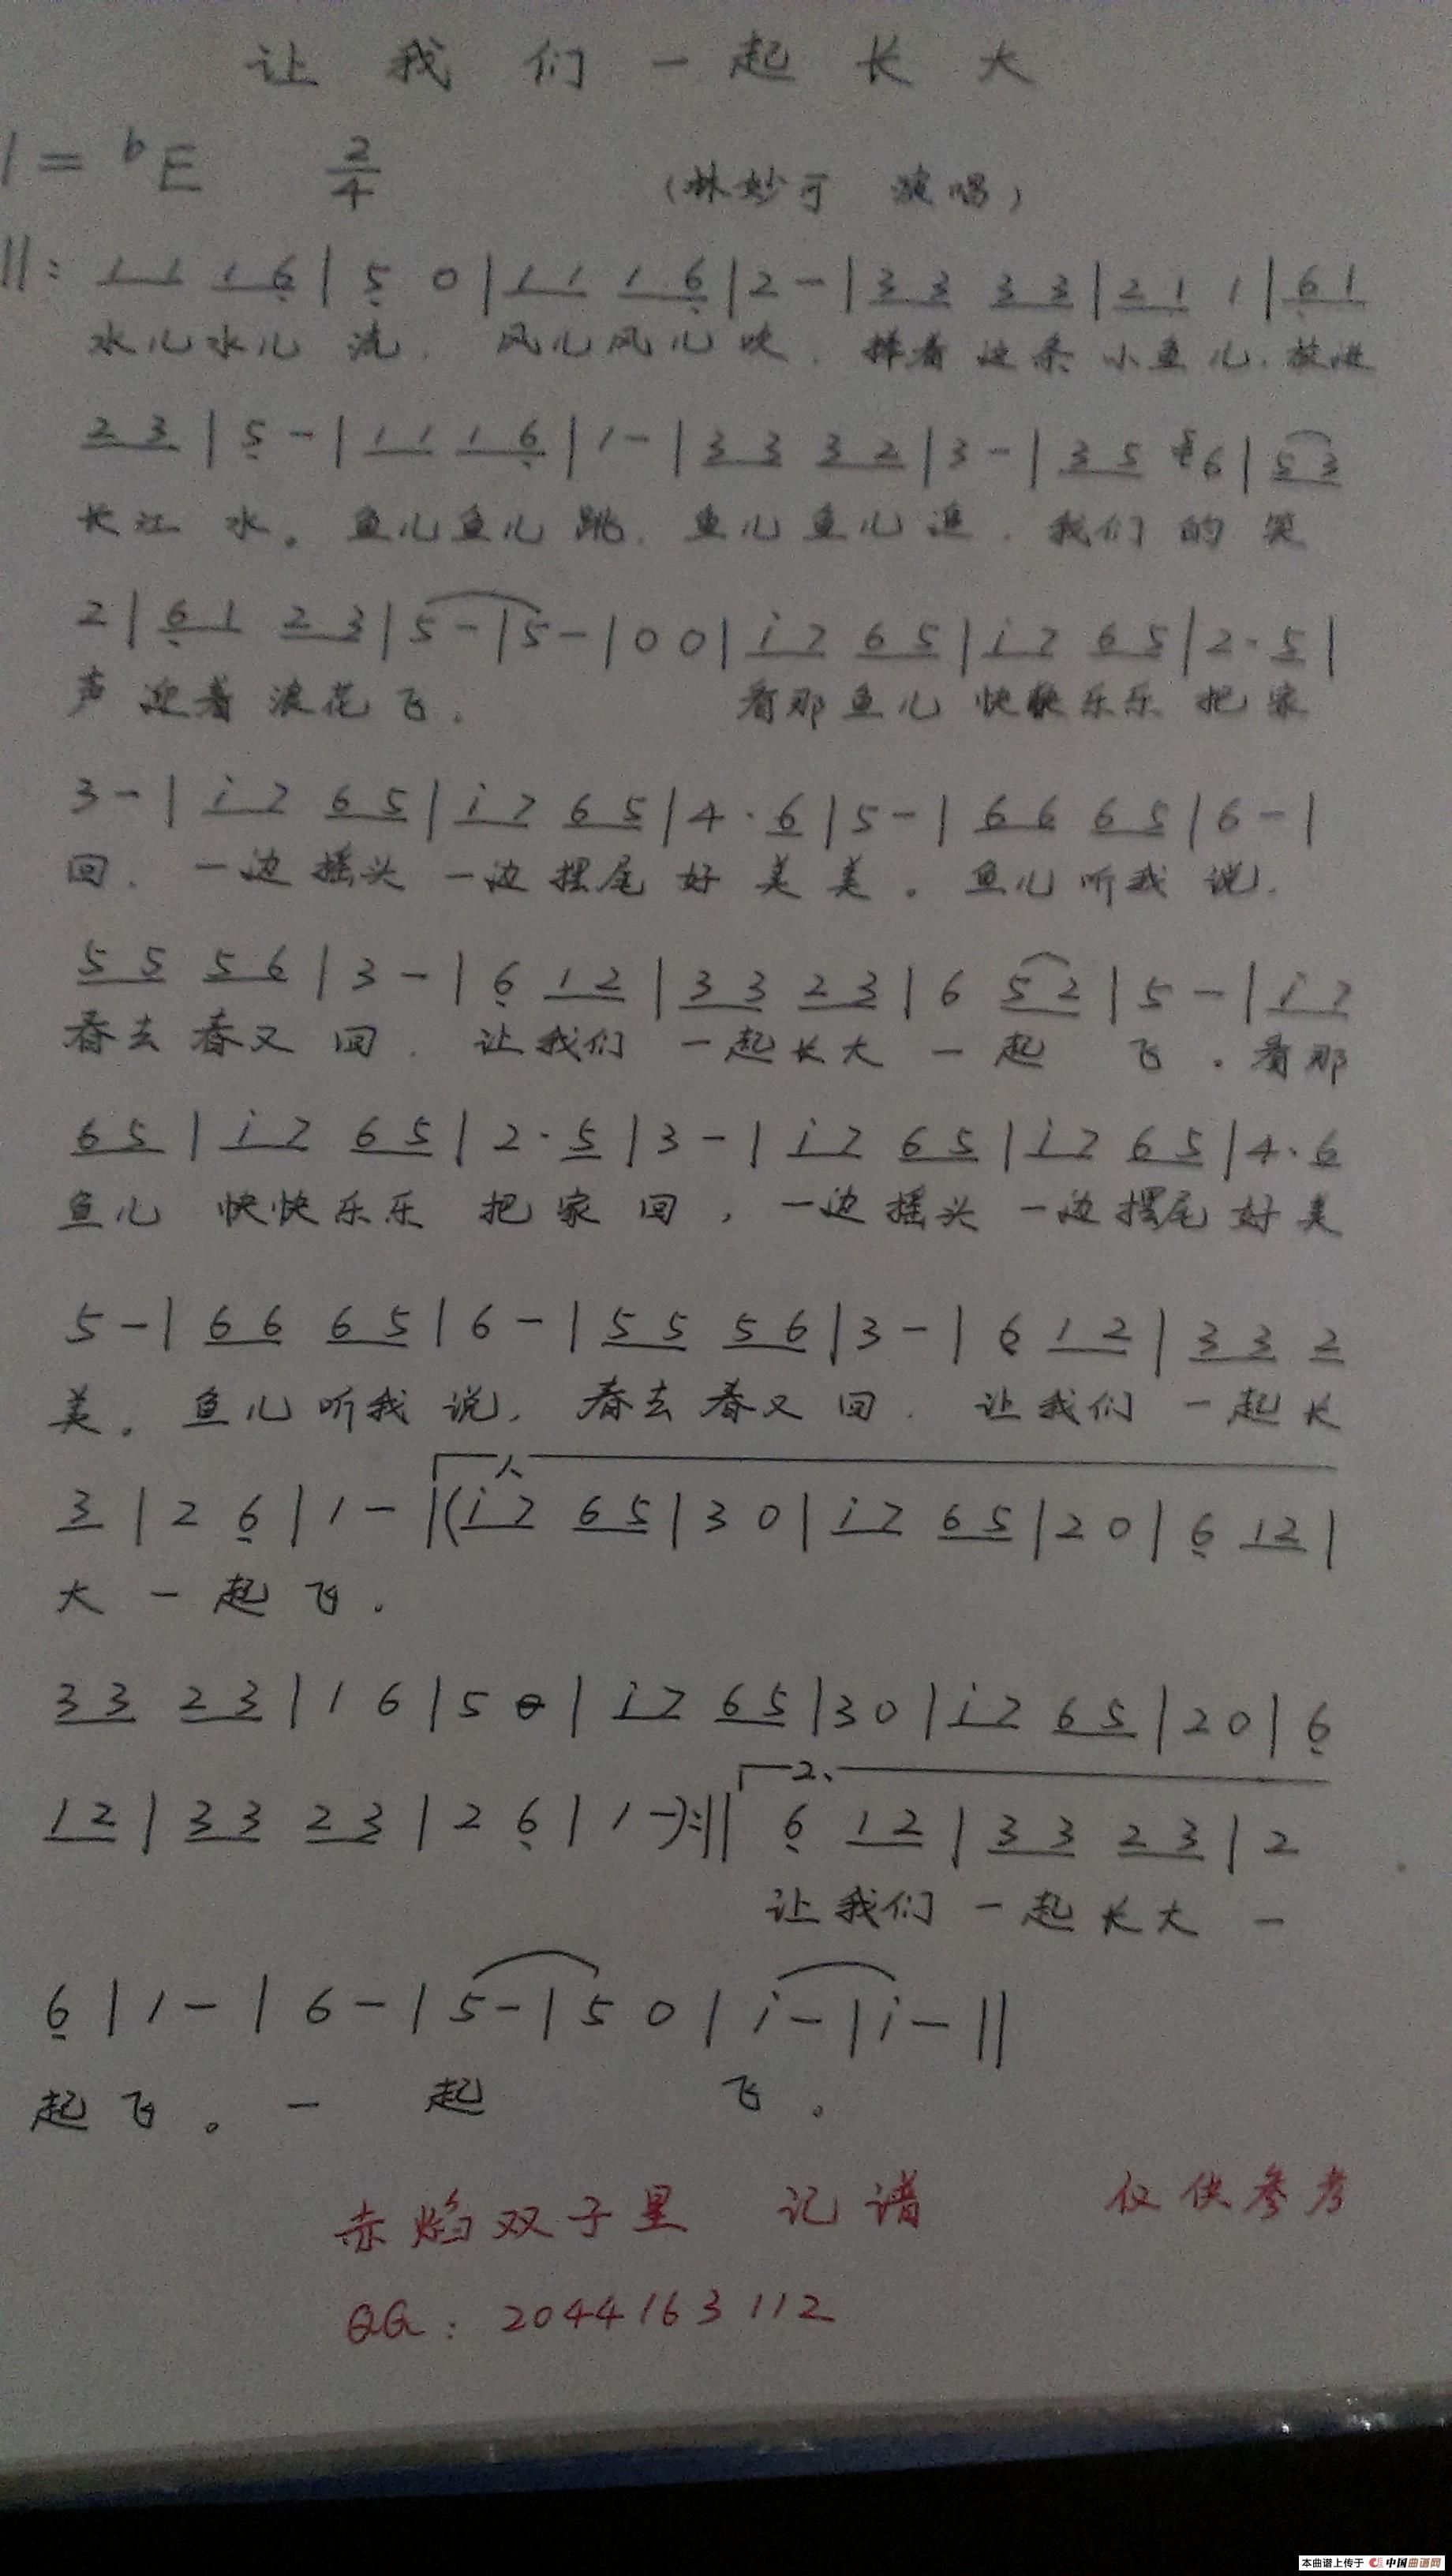 让我们一起长大
1=bE 2/4 (林妙可 演唱)
‖: 1 1 1 6̣ | 5̣ 0 | 1 1 1 6̣ | 2 - | 3 3 3 3 | 2 1 1 | 6̣ 1
水儿水儿 流. 风儿风儿吹. 捧着这条小鱼儿.放进
2 3 | 5̣ - | 1 1 1 6̣ | 1 - | 3 3 3 2 | 3 - | 3 5 6 | 5 3
长江 水。鱼儿鱼儿 跳. 鱼儿鱼儿 追. 我们的 笑
2 | 6̣ 1 2 3 | 5 - | 5 - | 0 0 | i 7 6 5 | i 7 6 5 | 2 · 5 |
声 迎着 浪花飞. 看那鱼儿 快快乐乐 把家
3 - | i 7 6 5 | i 7 6 5 | 4 · 6 | 5 - | 6 6 6 5 | 6 - |
回. 一边摇头 一边摆尾 好美美。鱼儿听我 说.
5 5 5 6 | 3 - | 6̣ 1 2 | 3 3 2 3 | 6 5 2 | 5 - | i 7
春去春又 回. 让我们 一起长大 一起 飞.看那
6 5 | i 7 6 5 | 2 · 5 | 3 - | i 7 6 5 | i 7 6 5 | 4 · 6
鱼儿 快快乐乐 把家 回, 一边摇头 一边摆尾 好美
5 - | 6 6 6 5 | 6 - | 5 5 5 6 | 3 - | 6̣ 1 2 | 3 3 2
美。鱼儿听我 说, 春去春又回. 让我们 一起长
1、
3 | 2 6̣ | 1 - | (i 7 6 5 | 3 0 | i 7 6 5 | 2 0 | 6̣ 1 2 |
大 一起 飞.
3 3 2 3 | 1 6 | 5 0 | i 7 6 5 | 3 0 | i 7 6 5 | 2 0 | 6̣
2、
1 2 | 3 3 2 3 | 2 6̣ | 1 -):‖ 6̣ 1 2 | 3 3 2 3 | 2
让我们 一起长大 一
6̣ | 1 - | 6 - | 5 - | 5 0 | i - | i - ‖
起 飞。一 起 飞。
赤焰双子星 记谱 仅供参考
QQ: 2044163112
本曲谱上传于 中国曲谱网